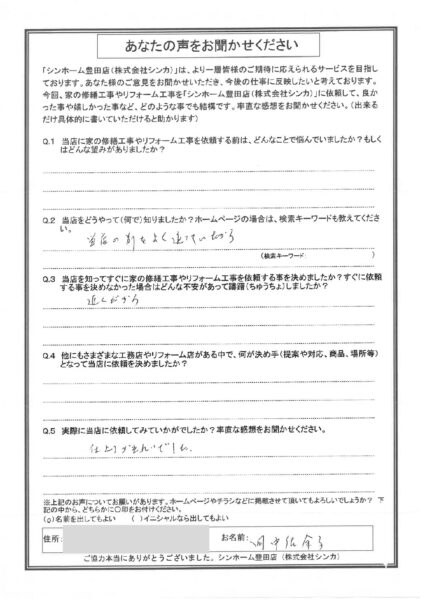 あなたの声をお聞かせください
「シンホーム豊田店(株式会社シンカ)」は、より一層皆様のご期待に応えられるサービスを目指し
ております。あなた様のご意見をお聞かせいただき、今後の仕事に反映したいと考えております。
今回、家の修繕工事やリフォーム工事を「シンホーム豊田店(株式会社シンカ)」に依頼して、良かっ
た事や嬉しかった事など、どのような事でも結構です。率直な感想をお聞かせください。(出来る
だけ具体的に書いていただけると助かります)
Q.1 当店に家の修繕工事やリフォーム工事を依頼する前は、どんなことで悩んでいましたか？もしく
はどんな望みがありましたか？
Q.2 当店をどうやって(何で)知りましたか？ホームページの場合は、検索キーワードも教えてくださ
い。
当店の前をよく通っていたから
(検索キーワード: )
Q.3 当店を知ってすぐに家の修繕工事やリフォーム工事を依頼する事を決めましたか？すぐに依頼
する事を決めなかった場合はどんな不安があって躊躇(ちゅうちょ)しましたか？
近くだから
Q.4 他にもさまざまな工務店やリフォーム店がある中で、何が決め手(提案や対応、商品、場所等)
となって当店に依頼を決めましたか？
Q.5 実際に当店に依頼してみていかがでしたか？率直な感想をお聞かせください。
仕上りがきれいでした
※上記のお声についてお願いがあります。ホームページやチラシなどに掲載させて頂いてもよろしいでしょうか？ 下
記の中から、どちらかに〇印をお付けください。
(o)名前を出してもよい ( )イニシャルなら出してもよい
住所:
お名前:
ご協力本当にありがとうございました。シンホーム豊田店 (株式会社シンカ)